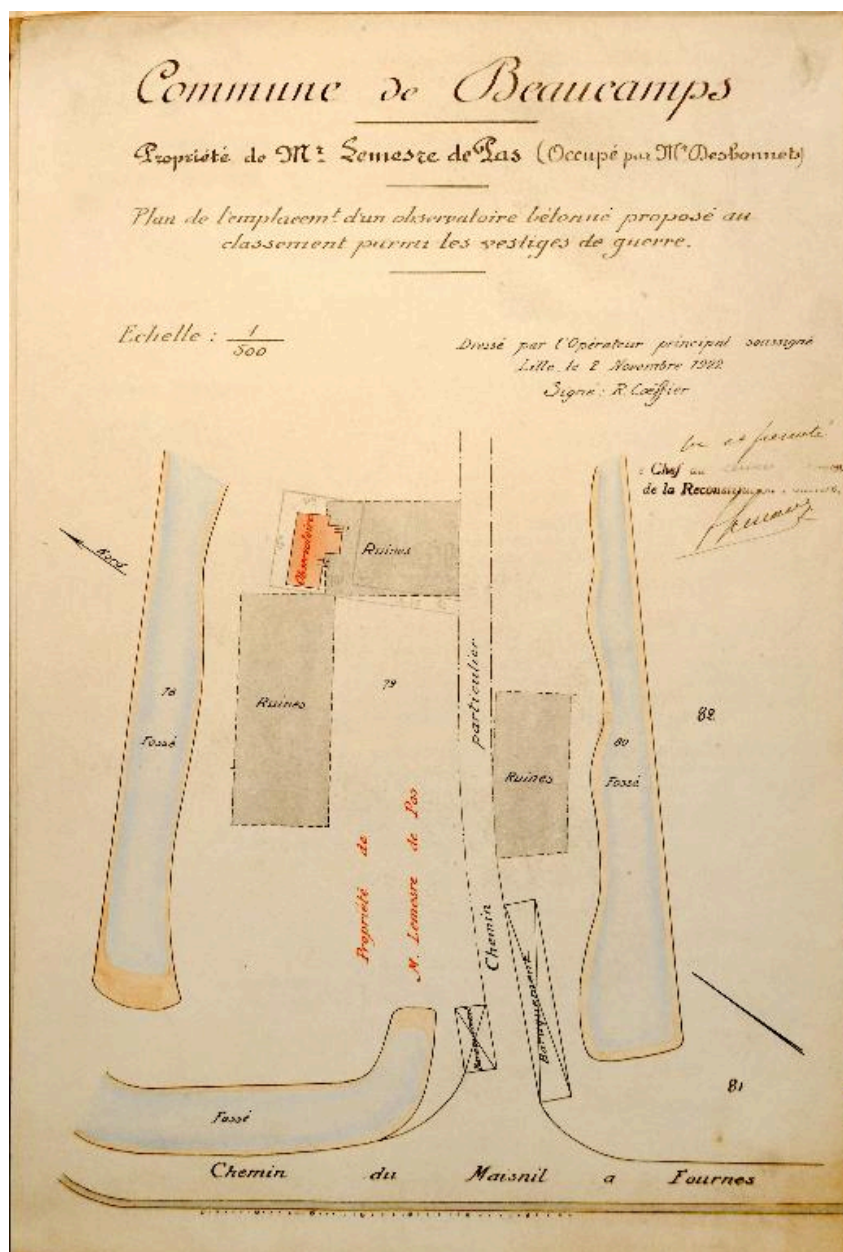 Commune de Beaucamps
Propriété de Mr Lemesre de Pas (Occupé par Mr Desbonnets)
Plan de l'emplacemt d'un observatoire bétonné proposé au
classement parmi les vestiges de guerre.
Echelle : 1
500
Dressé par l'Opérateur principal soussigné
Lille, le 2 Novembre 1922
Signé : R. Cœffier
Chef
de la Reconstitution
Nord
Observatoire
Ruines
78
Fossé
Ruines
79
particulier
Ruines
80
Fossé
82
Propriété de
M. Lemesre de Pas
Chemin
Baraquement
Fossé
81
Chemin du Maisnil a Fournes